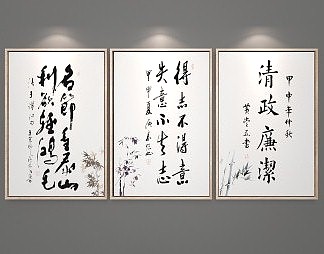 名節重泰山
利欲輕鴻毛
得志不得意
失意不失志
甲申年仲秋
清政廉潔